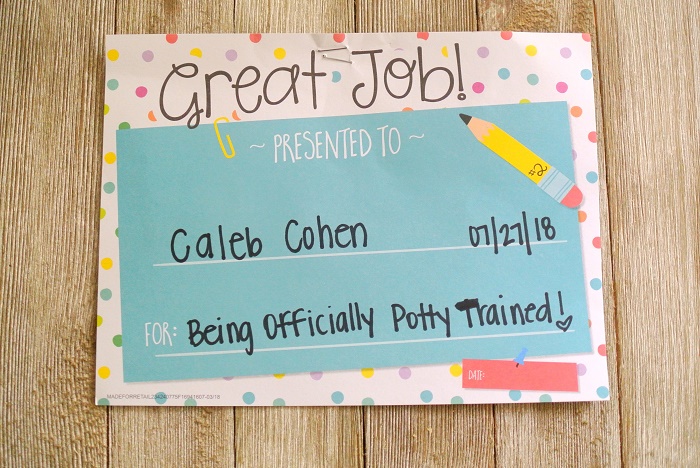 Great Job!
~ PRESENTED TO ~
#2
Caleb Cohen 07/27/18
FOR: Being Officially Potty Trained!
DATE: